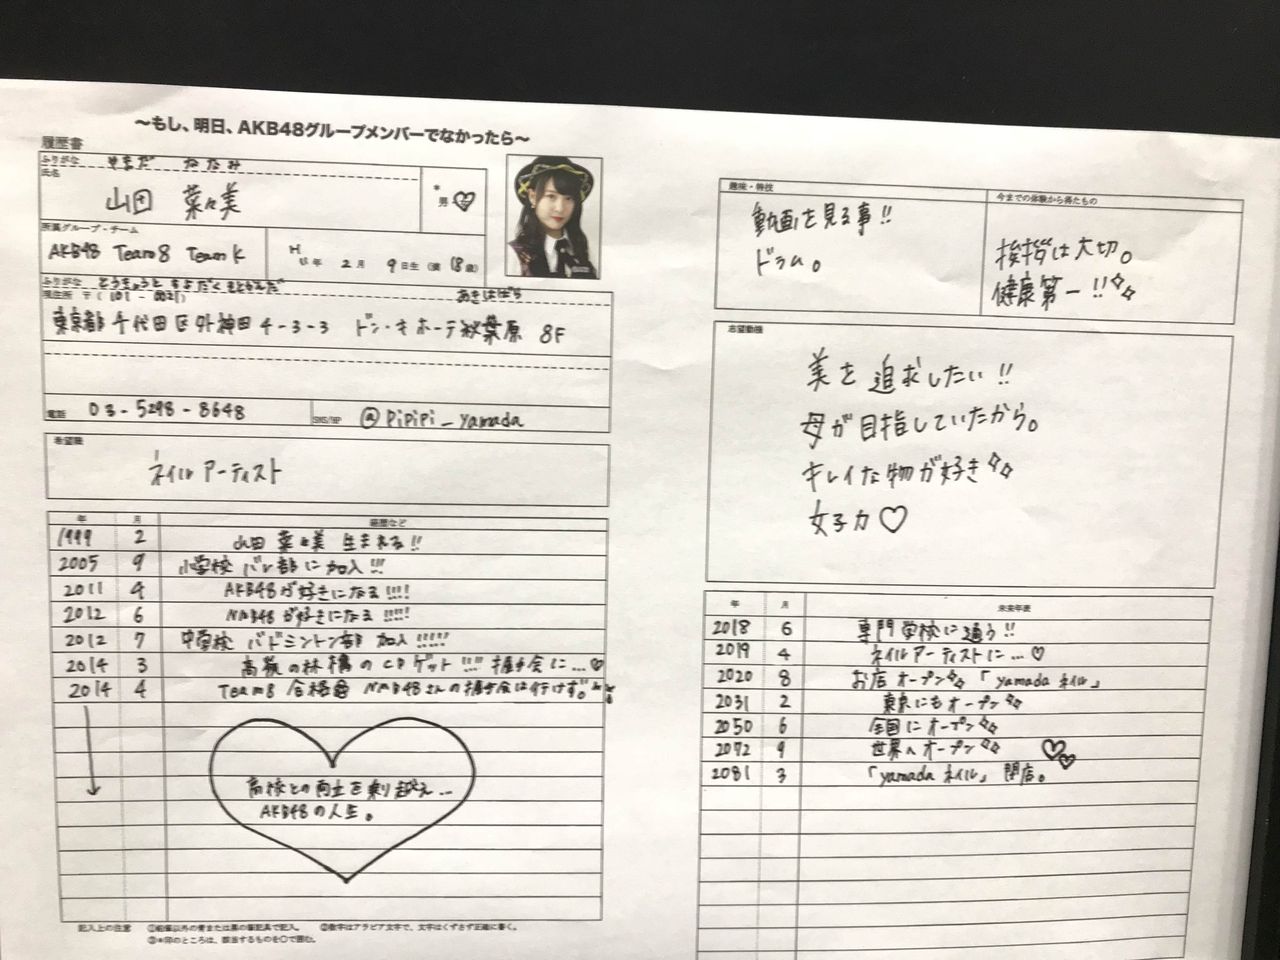 ～もし、明日、AKB48グループメンバーでなかったら～
履歴書
ふりがな やまだ ななみ
氏名
山田 菜々美
*男
所属グループ・チーム
AKB48 Team8 TeamK
H 年 2月 9日生 (満 18歳)
ふりがな とうきょうと ちよだく そとかんだ あきはばら
現住所 〒(101-0021)
東京都千代田区外神田4-3-3 ドン・キホーテ秋葉原 8F
電話 03-5298-8648
SNS/HP @pipipi_yamada
希望職
ネイルアーティスト
年 月 経歴など
1999 2 山田 菜々美 生まれる!!
2005 9 小学校 バレー部に加入!!!
2011 4 AKB48が好きになる!!!!
2012 6 NMB48が好きになる!!!!
2012 7 中学校 バドミントン部 加入!!!!!
2014 3 高嶺の林檎のCDゲット!!!! 握手会に…♡
2014 4 Team8 合格 NMB48さんの握手会は行けず。
↓
高校との両立を乗り越え…
AKB48の人生。
記入上の注意 ①鉛筆以外の青または黒の筆記具で記入。 ②数字はアラビア文字で、文字はくずさず正確に書く。
③*印のところは、該当するものを○で囲む。
趣味・特技
動画を見る事!!
ドラム。
今までの体験から得たもの
挨拶は大切。
健康第一!!
志望動機
美を追求したい!!
母が目指していたから。
キレイな物が好き
女子力♡
年 月 未来年表
2018 6 専門学校に通う!!
2019 4 ネイルアーティストに…♡
2020 8 お店オープン「yamadaネイル」
2031 2 東京にもオープン
2050 6 全国にオープン
2072 9 世界へオープン ♡♡
2081 3 「yamadaネイル」閉店。